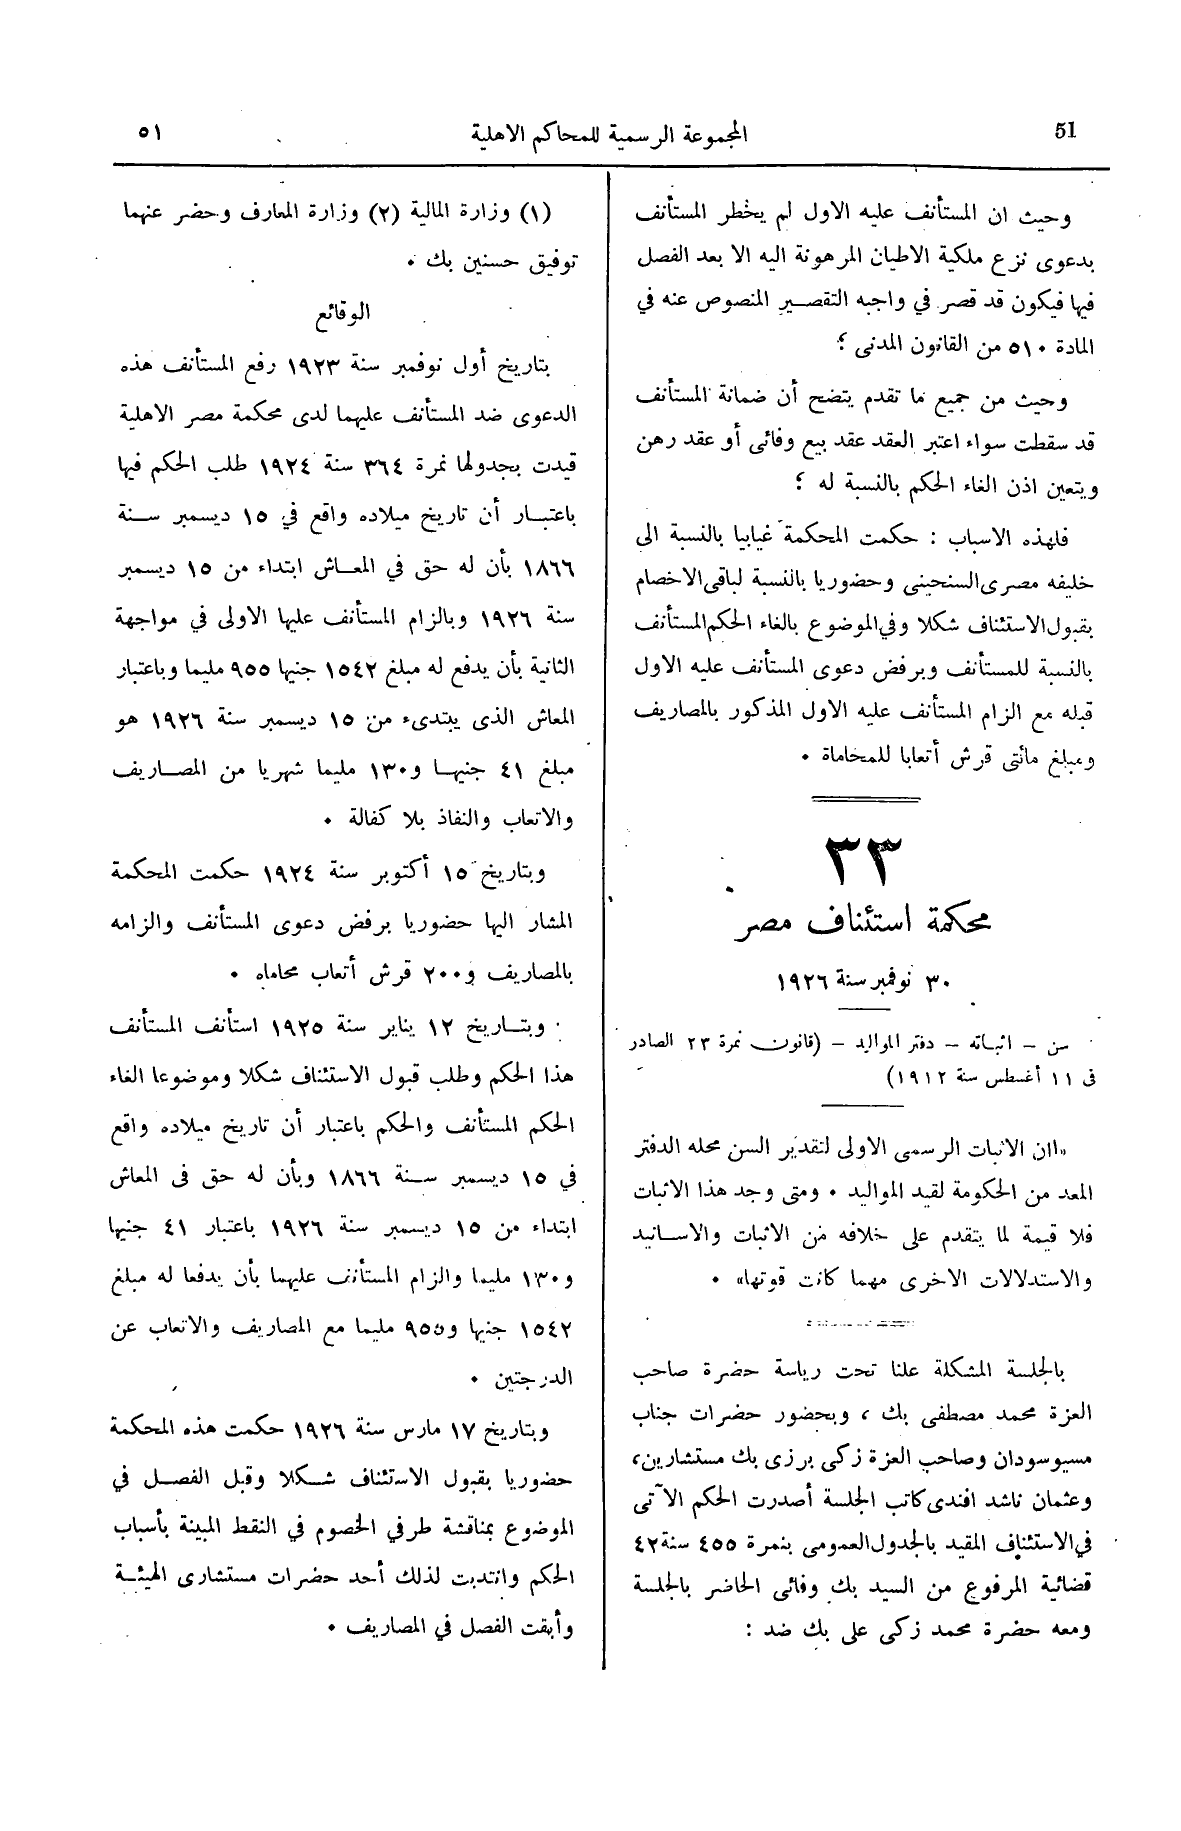 51
المجموعة الرسمية للمحاكم الاهلية
٥١
وحيث ان المستأنف عليه الاول لم يخطر المستأنف
بدعوى نزع ملكية الاطيان المرهونة اليه الا بعد الفصل
فيها فيكون قد قصر في واجبه التقصير المنصوص عنه في
المادة ٥١٠ من القانون المدنى ؛
وحيث من جميع ما تقدم يتضح أن ضمانة المستأنف
قد سقطت سواء اعتبر العقد عقد بيع وفائى أو عقد رهن
ويتعين اذن الغاء الحكم بالنسبة له ؛
فلهذه الاسباب : حكمت المحكمة غيابيا بالنسبة الى
خليفه مصرى السنحينى وحضوريا بالنسبة لباقى الاخصام
بقبول الاستئناف شكلا وفي الموضوع بالغاء الحكم المستأنف
بالنسبة للمستأنف وبرفض دعوى المستأنف عليه الاول
قبله مع الزام المستأنف عليه الاول المذكور بالمصاريف
ومبلغ مائتى قرش أتعابا للمحاماة .
٣٣
محكمة استئناف مصر
٣٠ نوفمبر سنة ١٩٢٦
سن - اثباته - دفتر المواليد - (قانون نمرة ٢٣ الصادر
فى ١١ أغسطس سنة ١٩١٢)
«اان الاثبات الرسمى الاولى لتقدير السن محله الدفتر
المعد من الحكومة لقيد المواليد . ومتى وجد هذا الاثبات
فلا قيمة لما يتقدم على خلافه من الاثبات والاسانيد
والاستدلالات الاخرى مهما كانت قوتها» .
بالجلسة المشكلة علنا تحت رياسة حضرة صاحب
العزة محمد مصطفى بك ، وبحضور حضرات جناب
مسيو سودان وصاحب العزة زكى برزى بك مستشارين،
وعثمان ناشد افندى كاتب الجلسة أصدرت الحكم الآتى
في الاستئناف المقيد بالجدول العمومى بنمرة ٤٥٥ سنة ٤٢
قضائية المرفوع من السيد بك وفائى الحاضر بالجلسة
ومعه حضرة محمد زكى على بك ضد :
(١) وزارة المالية (٢) وزارة المعارف وحضر عنهما
توفيق حسنين بك .
الوقائع
بتاريخ أول نوفمبر سنة ١٩٢٣ رفع المستأنف هذه
الدعوى ضد المستأنف عليهما لدى محكمة مصر الاهلية
قيدت بجدولها نمرة ٣٦٤ سنة ١٩٢٤ طلب الحكم فيها
باعتبار أن تاريخ ميلاده واقع في ١٥ ديسمبر سنة
١٨٦٦ بأن له حق في المعاش ابتداء من ١٥ ديسمبر
سنة ١٩٢٦ وبالزام المستأنف عليها الاولى في مواجهة
الثانية بأن يدفع له مبلغ ١٥٤٢ جنيها ٩٥٥ مليما وباعتبار
المعاش الذى يبتدىء من ١٥ ديسمبر سنة ١٩٢٦ هو
مبلغ ٤١ جنيها و١٣٠ مليما شهريا من المصاريف
والاتعاب والنفاذ بلا كفالة .
وبتاريخ ١٥ أكتوبر سنة ١٩٢٤ حكمت المحكمة
المشار اليها حضوريا برفض دعوى المستأنف والزامه
بالمصاريف و٢٠٠ قرش أتعاب محاماه .
وبتاريخ ١٢ يناير سنة ١٩٢٥ استأنف المستأنف
هذا الحكم وطلب قبول الاستئناف شكلا وموضوعا الغاء
الحكم المستأنف والحكم باعتبار أن تاريخ ميلاده واقع
في ١٥ ديسمبر سنة ١٨٦٦ وبأن له حق فى المعاش
ابتداء من ١٥ ديسمبر سنة ١٩٢٦ باعتبار ٤١ جنيها
و١٣٠ مليما والزام المستأنف عليهما بأن يدفعا له مبلغ
١٥٤٢ جنيها و٩٥٥ مليما مع المصاريف والاتعاب عن
الدرجتين .
وبتاريخ ١٧ مارس سنة ١٩٢٦ حكمت هذه المحكمة
حضوريا بقبول الاستئناف شكلا وقبل الفصل في
الموضوع بمناقشة طرفي الخصوم في النقط المبينة بأسباب
الحكم وانتدبت لذلك أحد حضرات مستشارى الهيئة
وأبقت الفصل في المصاريف .